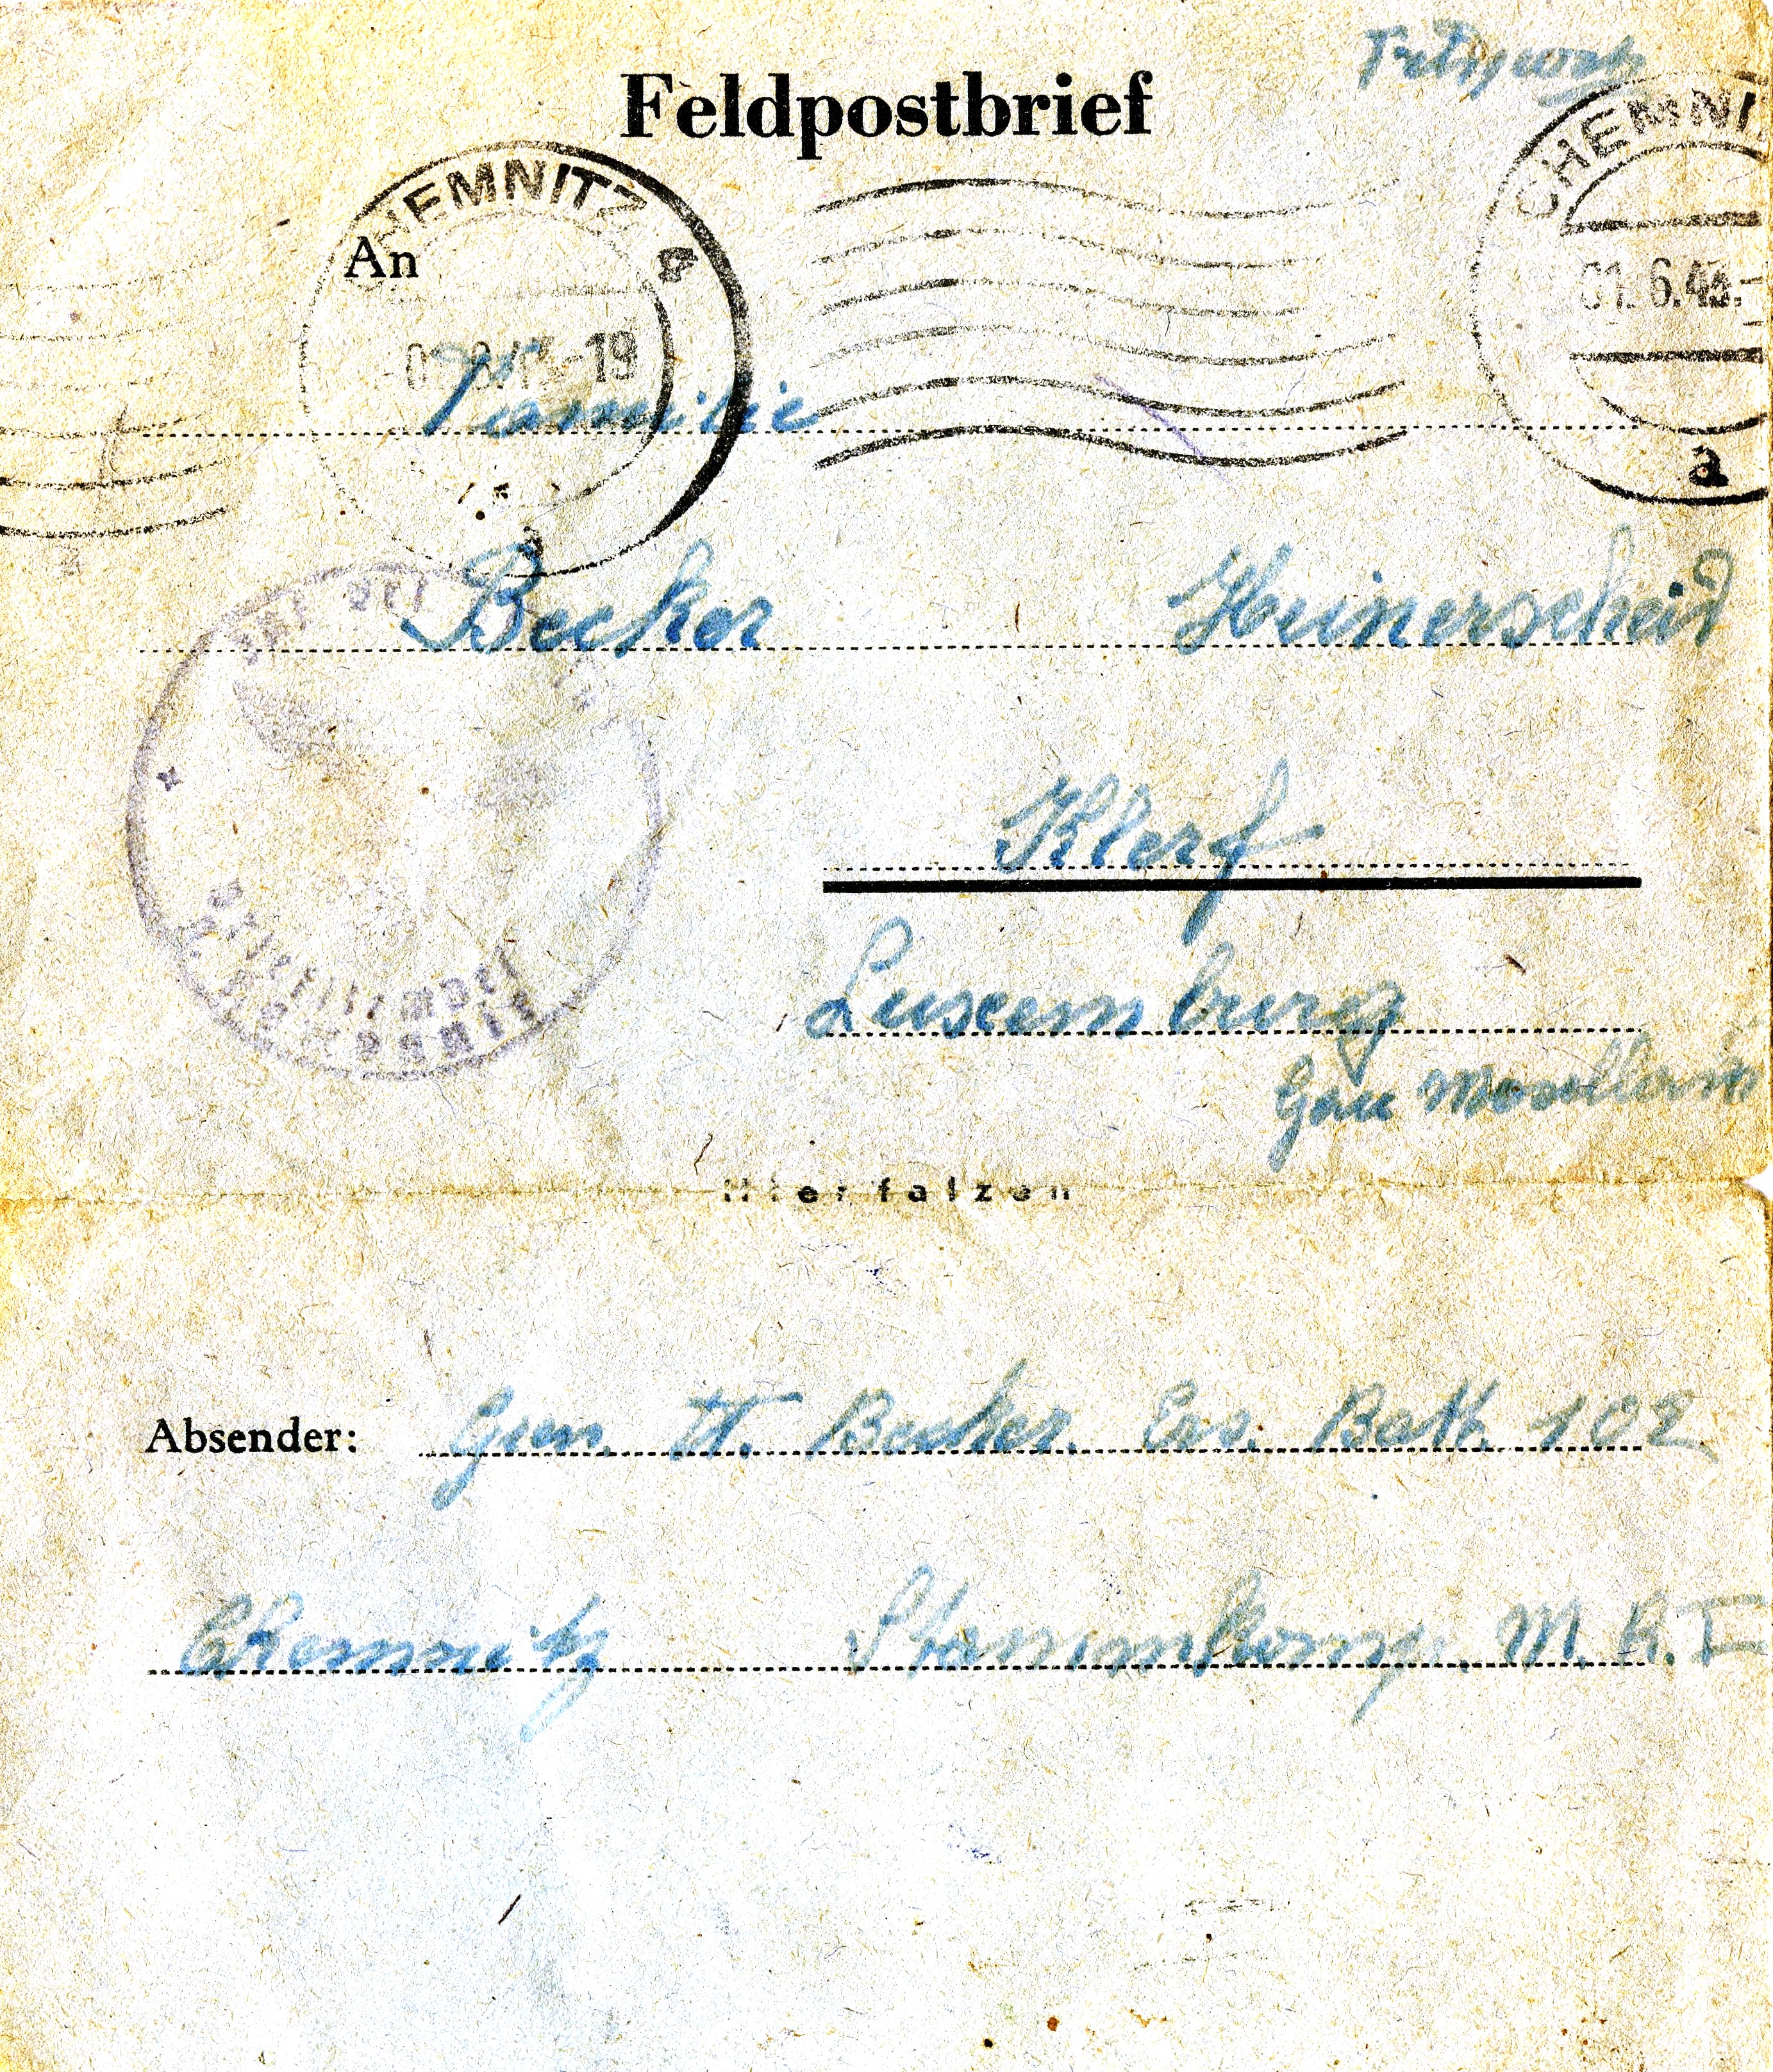 Feldpostbrief
CHEMNITZ 4
CHEMNI
An
-19
01.6.44.
Familie
a
Becker Heinerscheid
Klerf
Luxemburg
Gau Moselland
Hier falzen
Absender: Gren. H. Becker. Ers. Batl. 102
Chemnitz Stammkomp. M.